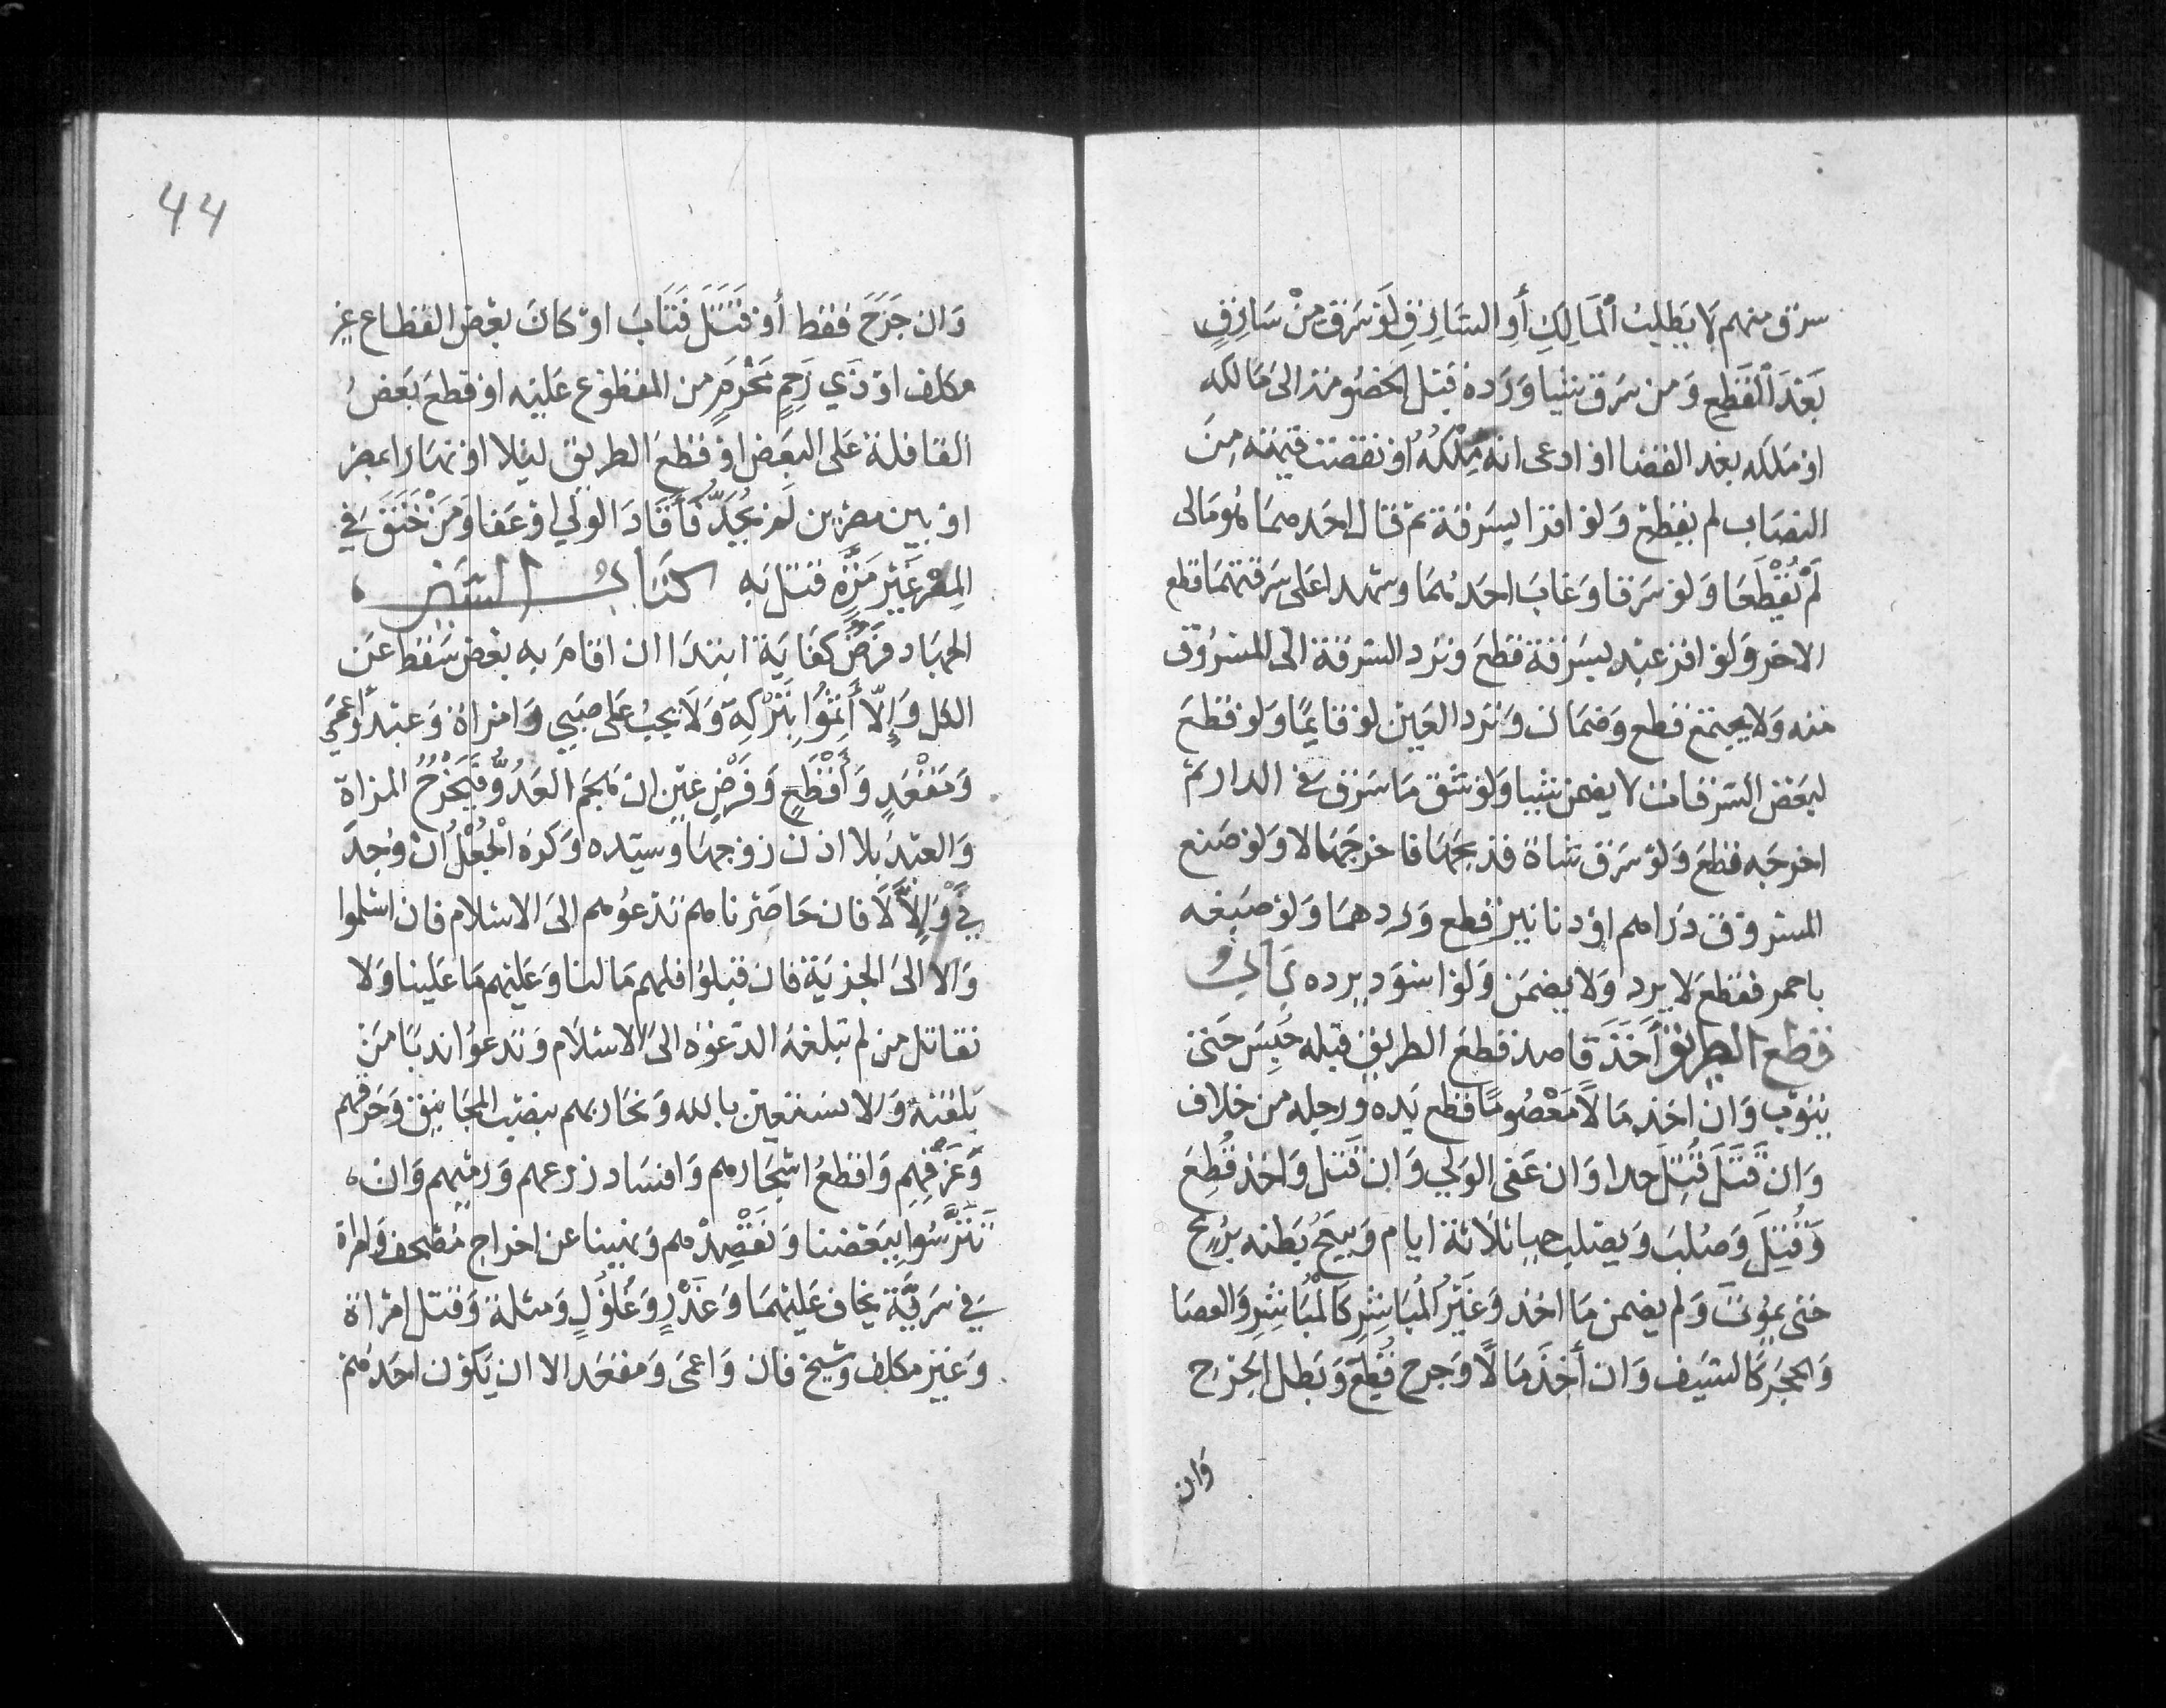 سرق منهم لا بطلب المالك أو السارق لو سرق من سارق
بعد القطع ومن سرق شيا ورده قبل الخصومة الى مالكه
او ملكه بعد القضا او ادعى انه ملكه أو نقصت قيمته من
النصاب لم يقطع ولو اقرا بسرقة ثم قال احدهما هو مالى
لم يقطعا ولو سرقا وغاب احدهما وشهدا على سرقتهما قطع
الاخر ولو اقر عبد بسرقة قطع وترد السرقة الى المسروق
منه ولا يجتمع قطع وضمان وترد العين لو قايما ولو قطع
لبعض السرقات لا يضمن شيا ولو شق ما سرق في الدار ثم
اخرجه قطع ولو سرق شاة فذبحها فاخرجها لا ولو صنع
المسروق دراهم او دنانير قطع وردهما ولو صبغه
باحمر فقطع لا يرد ولا يضمن ولو اسود يرده باب
قطع الطريق أخذ قاصد قطع الطريق قبله حبس حتى
يتوب وان اخذ مالا معصوما قطع يده ورجله من خلاف
وان قتل قتل حدا وان عفى الولي وان قتل واخذ قطع
وقتل وصلب ويصلب حيا ثلاثة ايام ويبعج بطنه برمح
حتى يموت ولم يضمن ما اخذ وغير المباشر كالمباشر والعصا
والحجر كالسيف وان أخذ مالا وجرح قطع وبطل الجرح
وان
44
وان جرح فقط أو قتل فتاب او كان بعض القطاع غير
مكلف او ذي رحم محرم من المقطوع عليه او قطع بعض
القافلة على البعض او قطع الطريق ليلا او نهارا بمصر
او بين مصرين لم يحد فأقاد الولي او عفا ومن خنق في
المصر غير مرة قتل به كتاب السير
الجهاد فرض كفاية ابتدا ان اقام به بعض سقط عن
الكل وإلا أثموا بتركه ولا يجب على صبي وامراة وعبد وأعمى
ومقعد وأقطع وفرض عين ان هجم العدو فيخرج المراة
والعبد بلا اذن زوجها وسيده وكره الجعل ان وجد
فئ وإلا لا فان حاصرناهم ندعوهم الى الاسلام فان اسلموا
والا الى الجزية فان قبلوا فلهم ما لنا وعليهم ما علينا ولا
نقاتل من لم تبلغه الدعوه الى الاسلام وندعوا ندبا من
بلغته والا نستعين بالله ونحاربهم بنصب المجانيق وحرقهم
وغرقهم واقطع اشجارهم وافساد زرعهم ورميهم وان
تترسوا ببعضنا ونقصدهم ونهينا عن اخراج مصحف وامراة
في سرية يخاف عليهما وغدر وغلول ومثلة وقتل امراة
وغير مكلف وشيخ فان واعمى ومقعد الا ان يكون احدهم